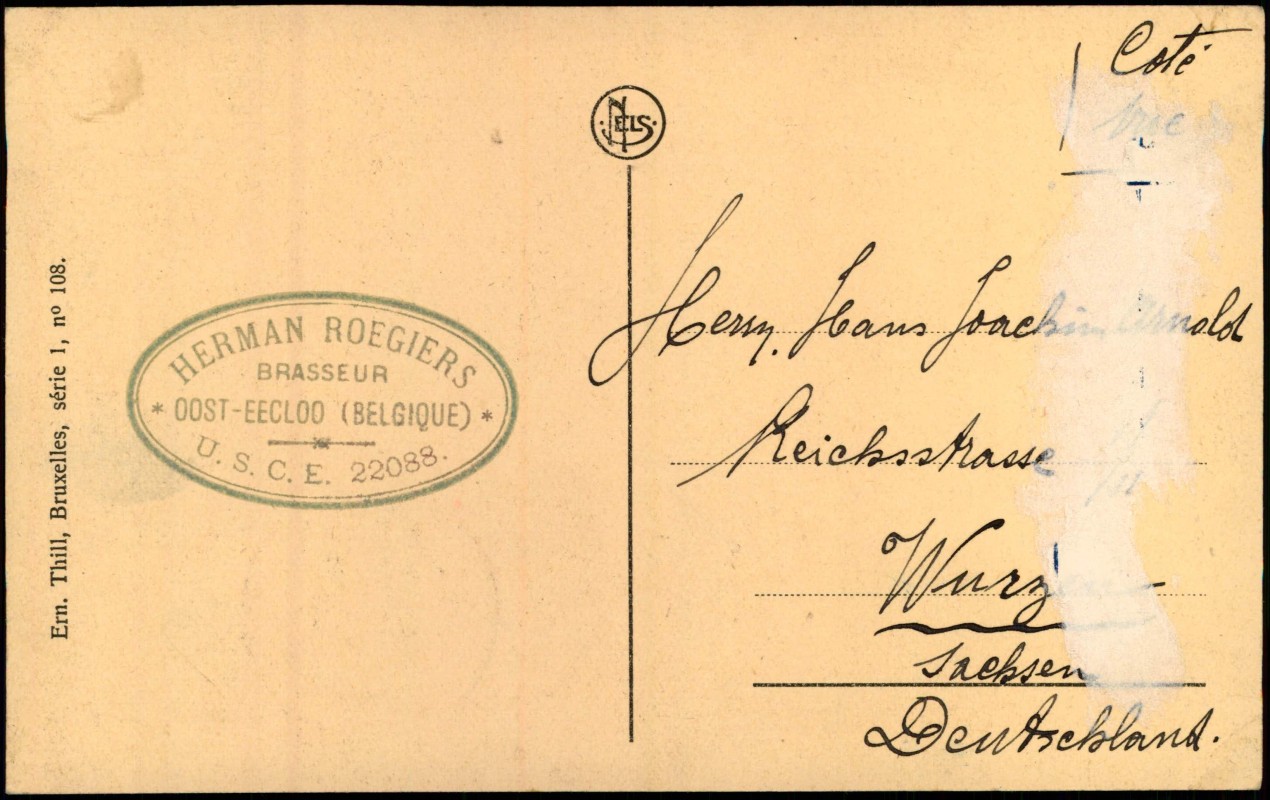 Coté
NELS
Ern. Thill, Bruxelles, série 1, nº 108.
HERMAN ROEGIERS
BRASSEUR
* OOST-EECLOO (BELGIQUE) *
U. S. C. E. 22088.
Herrn. Hans Joachim Arnold
Reichsstrasse
Wurzen
Sachsen
Deutschland.